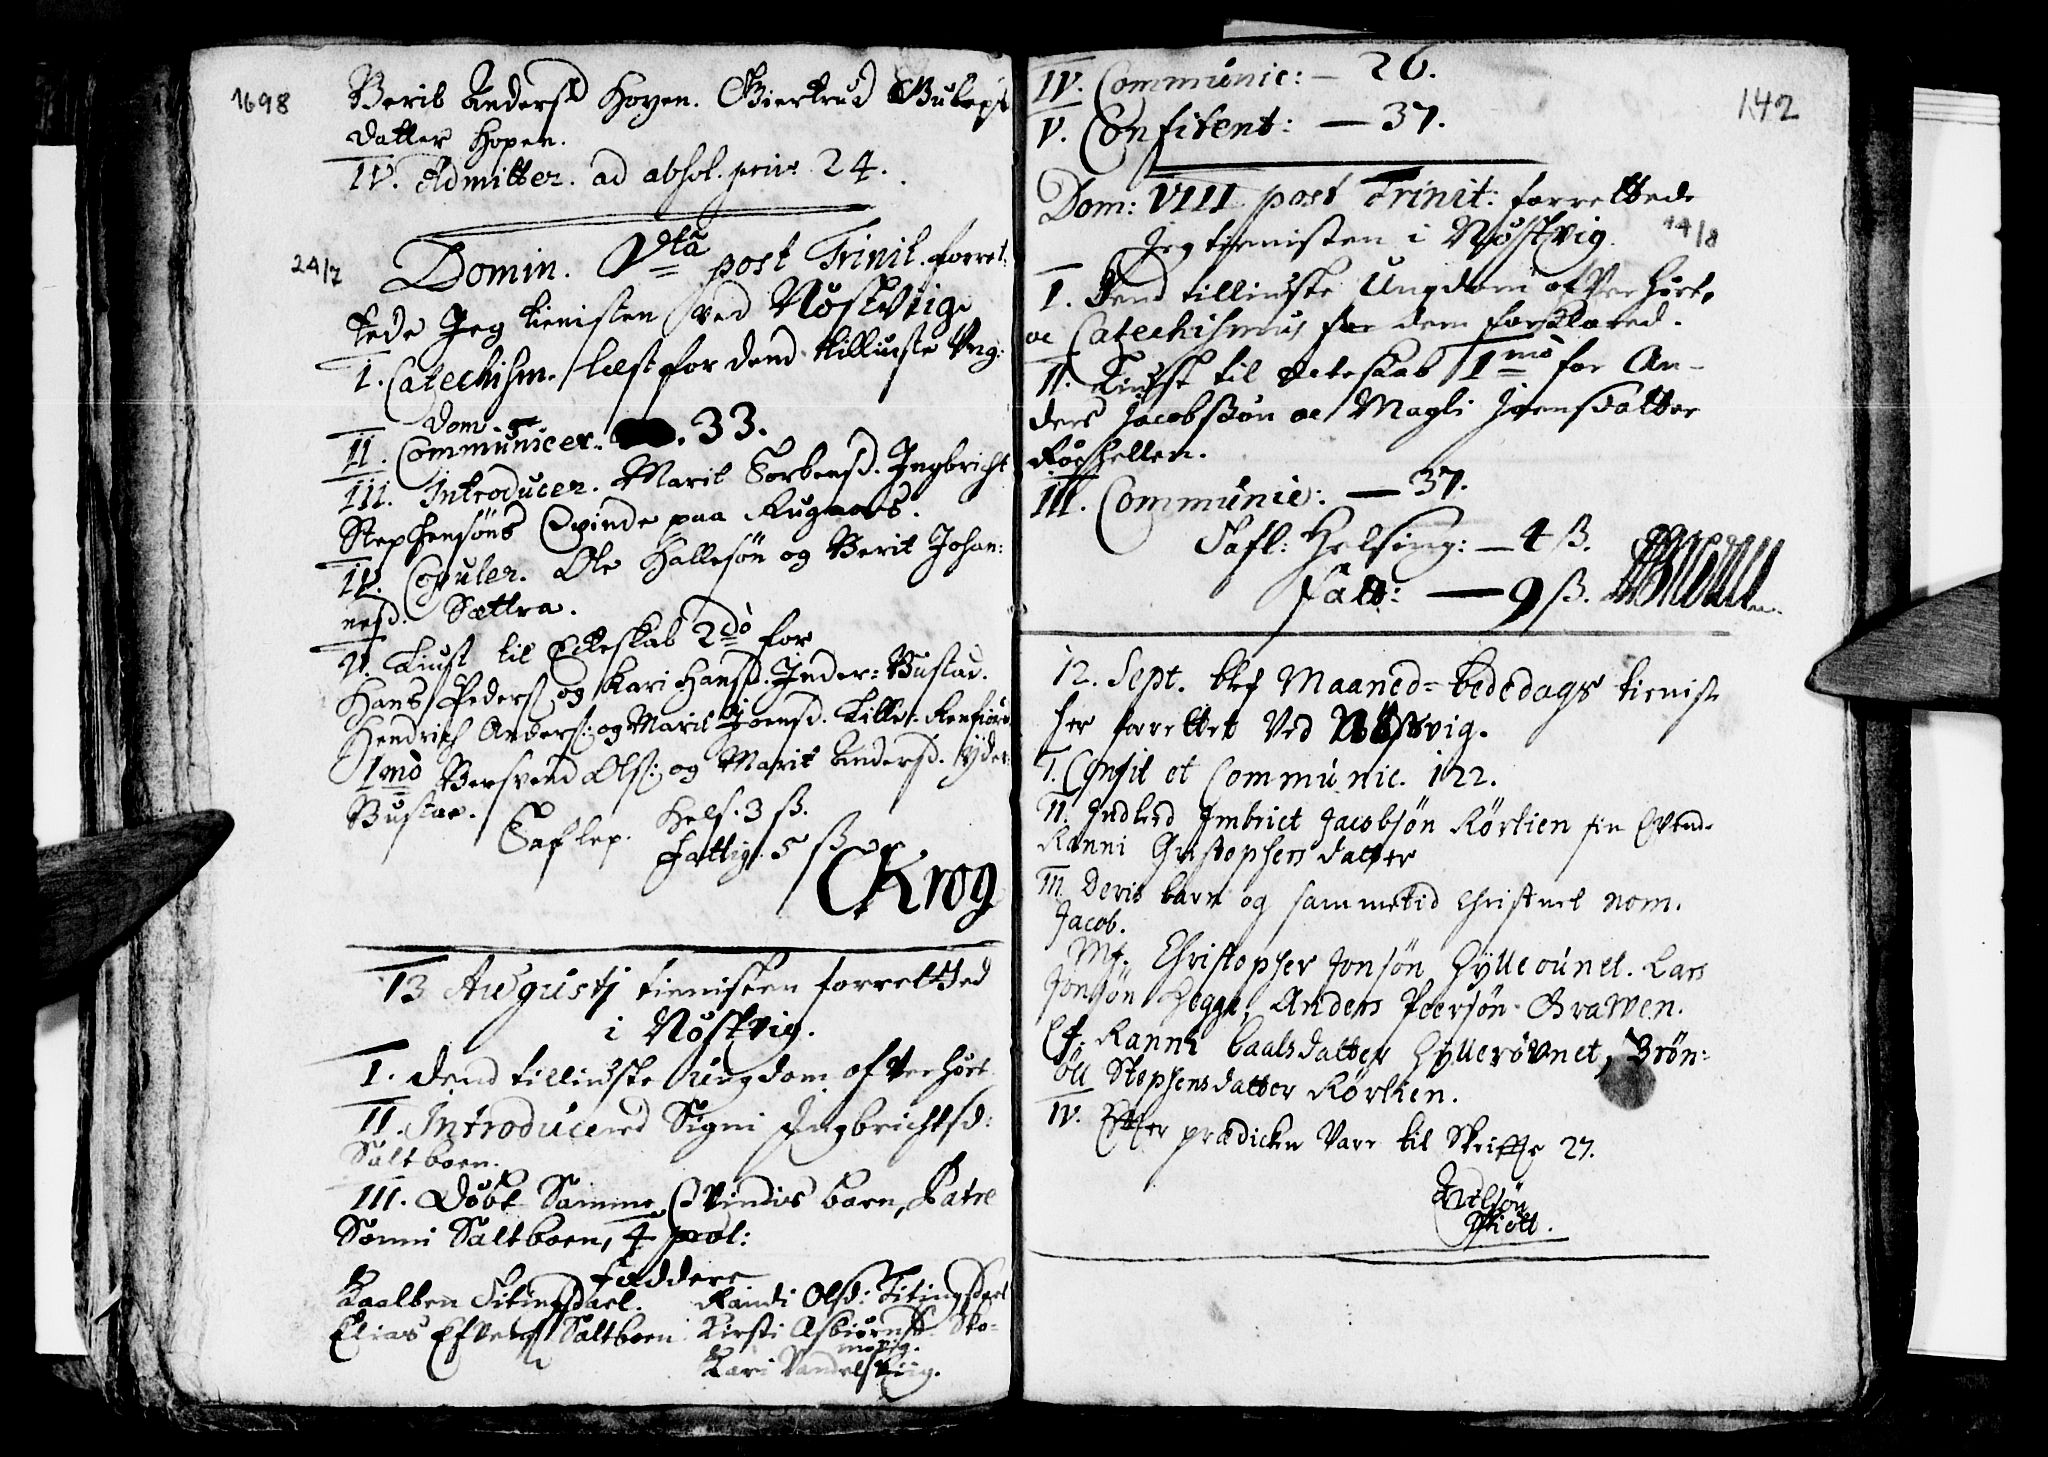 1698
Berit Andersd Hoyen. Giertrud
datter Hopen.
IV. Admitter. ad absol. priv. 24.
24/7
Domin. Vta post Trinit. forret:
tede Jeg tienisten ved Nøstvig.
I. Catechism. læst for dend tilliuste Vng:
dom.
II. Communicer. 33.
III. Introducer. Marit Torbensd. Jngbricht
Stephensøns Qvinde paa
IV. Copuler. Ole Hallesøn og Berit Johan:
nesd. Sættra.
V. Liust til Ecteskab 2do for
Hans Peders: og Kari Hansd. Jnder: Bustad.
Hendrich Anders: og Marit Joensd. Lille:
1mo Bersvend Ols: og Marit Andersd. Yder:
Bustad.
Tafl ep. Hels. 3 ß.
Fattig. 5 ß
CKrog
13 Augustj tienisten forretted
i Nøstvig.
I. Dend tilliuste ungdom ofverhørt
II. Introducered Signi Jngbrichtsd:
Saltboen.
III. Døbt Samme Qvindes barn, Patre
Sønni Saltboen,
Faddere
Titingsdael. Randi Olsd: Titingsdael
Elias Saltboen Kirsti Asbiørnsd. Sko-
movig.
Kari
142
IV. Communic: — 26.
V. Confitent: — 37.
Dom: VIII post Trinit: forrettede
Jeg tienisten i Nøstvig. 14/8
I. Dend tilliuste Ungdom ofverhørt,
oc Catechismus for dem forklared.
II. Liust til Ecteskab 1mo for An-
ders Jacobsøn oc Magli Joensdatter
III. Communic: — 37.
Tafl: Helsing: — 4 ß.
Fatt: — 9 ß.
12. Sept. blef Maaned-bededags tienist
her forrettet Ved Nøstvig.
I. Confit et Communic. 122.
II. Indled Imbrict Jacobsøn Rørlien sin Qvind.
Ranni Christophersdatter
III. Deris barn og sammetid Christnet nom.
Jacob.
Mf. Christopher Jonsøn Lars
Jonsøn Hegge, Anders Peersøn Grawen.
Qf. Ranni Brøn:
øll Stephensdatter Rørlien.
IV. Efter prædicken Vare til Skrifte 27.